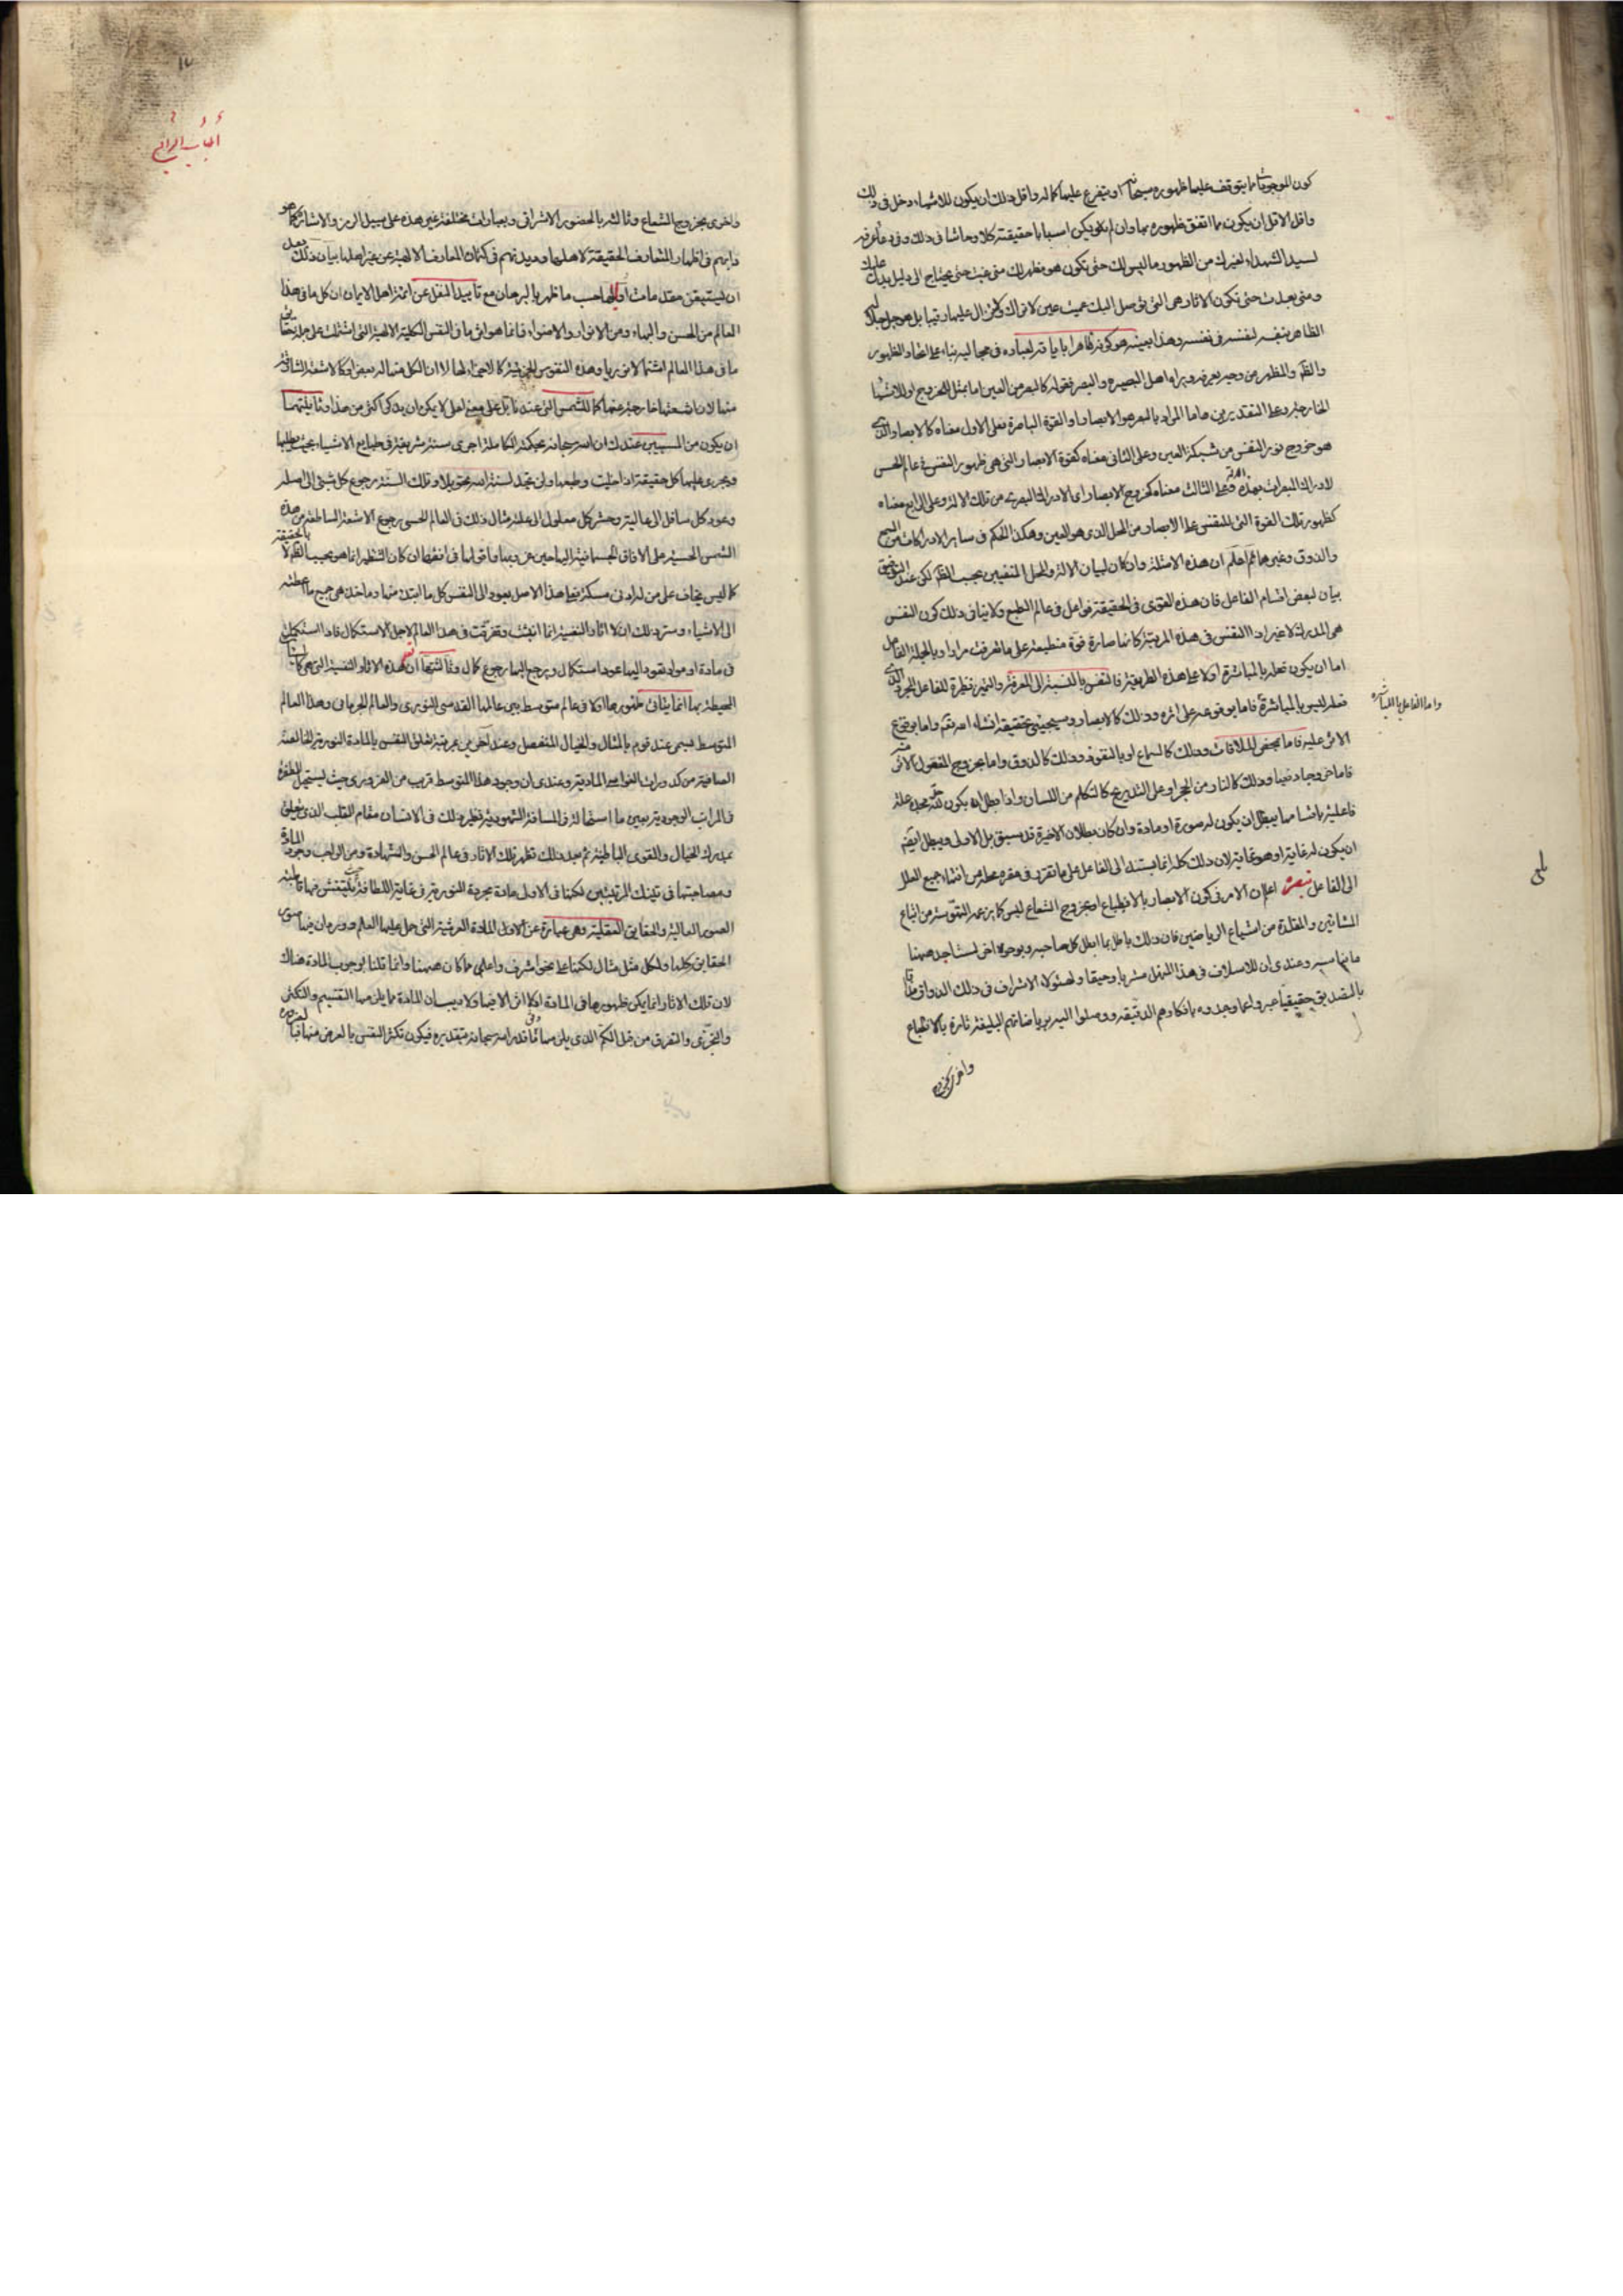 كون الموجودات ما يتوقف عليها ظهوره سبحانه او يتفرع عليها كماله واقل ذلك ان يكون للاشياء دخل فى ذلك
واقل الاقل ان يكون مما اتفق ظهوره بها وان لم يكن اسبابا حقيقة كلا وحاشا فى ذلك وفى دعاء عرفه
لسيد الشهداء لغيرك من الظهور ما ليس لك حتى يكون هو مظهر لك متى غبت حتى يحتاج الى دليل يدل عليك
ومتى بعدت حتى تكون الاثار هى التى توصل اليك عميت عين لا تراك ولا تزال عليها رقيبا بل هو جل جلاله
الظاهر بنفسه لنفسه فى نفسه وهذا بعينه هو كونه ظاهرا باياته لعباده فى مجاليه بناء على اتحاد الظهور
والظاهر والمظهر من وجه يعرفه ويراه اهل البصيرة والبصر فقوله كالبصر من العين اما تمثل للخروج او للاشياء
الخارجة وعلى التقديرين فاما المراد بالبصر هو الابصار او القوة الباصرة فعلى الاول معناه كالابصار الذى
هو خروج نور النفس من شبكة العين وعلى الثانى معناه كقوة الابصار التى هى ظهور النفس فى عالم الحس
لادراك المبصرات بهذه القوة وعلى الثالث معناه كخروج الابصار اى الادراك البصرى من تلك الالة وعلى الرابع معناه
كظهور تلك القوة التى للنفس على الابصار من المحل الذى هو العين وهكذا الحكم فى ساير الادراكات من السمع
والذوق وغيرهما ثم اعلم ان هذه الامثلة وان كان لبيان الالة والمحل المنفيين بحسب الظاهر لكن عند التحقيق
بيان لبعض اقسام الفاعل فان هذه القوى فى الحقيقة فواعل فى عالم الطبع ولا ينافى ذلك كون النفس
هى المدرك لا غير اذا النفس فى هذه المرتبة كانها صارة قوة منطبعة على ما عرفت مرارا وبالجملة الفاعل
اما ان يكون فعله بالمباشرة اولا على هذه الطريقة فالنفس بالنسبة الى المعرفة والتميز نظيرة للفاعل المجرد الذى
فعله ليس بالمباشرة فاما بوقوعه على اثره وذلك كالابصار وسيجيئ تحقيقه انشاء الله تعالى واما بوقوع
واما الفاعل بالمباشرة
الاثر عليه فاما بمحض الملاقات وذلك كالسماع او بالنفوذ وذلك كالذوق واما بخروج المفعول الاثر منه
فاما خروجا دفعيا وذلك كالنار من الحجر او على التدريج كالتكلم من اللسان واذا بطل ان يكون له عز مجده علة
فاعلية باقسامها يبطل ان يكون له صورة او مادة وان كان بطلان الاخيرة قد سبق بل الاولى ويبطل ايضا
ان يكون له غاية او هو غاية لان ذلك كله انما يستند الى الفاعل على ما تقرر فى مقره محله من انتهاء جميع العلل
الى الفاعل تبصرة اعلم ان الامر فى كون الابصار بالانطباع او بخروج الشعاع ليس كما يزعمه القوم من اتباع
المشائين والمقلدة من اشياع الرياضيين فان ذلك باطل بما ابطل كل صاحبه وبوجوه اخر لسنا بصدد هيهنا
وعندى ان للاسلاف فى هذا المنهل مشربا رحيقا ولهؤلاء الاشراف فى ذلك الذواق
بالتصديق حقيقيا عبروا عما وجدوه بافكارهم الدقيقة ووصلوا اليه برياضاتهم البليغة تارة بالانطباع
واخرى بخروج
واخرى بخروج الشعاع وثالثة بالحضور الاشراقى وبعبارات مختلفة غير هذه على سبيل الرمز والاشارة كما هو
دابهم فى اظهار المعارف الحقيقة لاهلها وديدنهم فى كتمان المعارف الالهية عن غير اهلها بيان ذلك بعد
ان تستيقن مقدمات اوليها حسب ما ظهر بالبرهان مع تاييد النقل عن ائمة اهل الايمان ان كل ما فى هذا
العالم من الحسن والبهاء ومن الانوار والاضواء فانما هو اثر ما فى النفس الكلية الالهية التى اشتملت على حقايق
ما فى هذا العالم اشتمالا نوريا وهذه النفوس الجزئية كالاجزاء لها لا ان الكل منها له بعض او كالاشعة الشارقة
منها لا ان اشعتها خارجة عنها كما للشمس التى عندنا بل على معنى اعلى لا يمكن ان يذكر اكثر من هذا وثانيتهما
ان يكون من المستبين عندك ان الله سبحانه بحكمته الكاملة اجرى سنة شريفة فى طبايع الاشياء بحيث يطلبها
ويجرى عليها كل حقيقة اذا خليت وطبعها ولن تجد لسنة الله تحويلا وتلك السنة رجوع كل شئ الى اصله
وعود كل سافل الى عاليه وحشر كل معلول الى علته مثال ذلك فى العالم الحسى رجوع الاشعة الساطعة من هذه
الشمس الحسية على الافاق الجسمانية اليها حين غروبها واقولها فى افقها وان كان التنظير انما هو بحسب الظاهر لا بالحقيقة
كما ليس يخاف على من له ادنى مسكة فعلى هذا الاصل يعود الى النفس كل ما ابتدئ منها وماخذ هى جميع ما اعطته
الى الاشياء وسر ذلك ان الاثار النفسية انما انبثت وتفرقت فى هذا العالم لاجل الاستكمال فاذا استكملت
فى مادة او مواد يقود اليها عود استكمال ويرجع اليها رجوع كمال وثالثتها ان هذه الاثار النفسية التى هى كمالات
المحيطة بها انما يتاتى ظهورها اولا فى عالم متوسط بين عالمها القدسى النورى والعالم الجرمانى وهذا العالم
المتوسط يسمى عند قوم بالمثال والخيال المنفصل وعند اخرين عن مرتبة تعلق النفس بالمادة النورية الخالصة
الصافية من كدورات الغواسق المادية وعندى ان وجود هذا المتوسط قريب من الضرورى حيث يستحيل الطفرة
فى المراتب الوجودية بعين ما استحالة فى المسافة الشهودية ونظير ذلك فى الانسان مقام القلب الذى يتعلق
بمدرك الخيال والقوى الباطنة ثم بعد ذلك تظهر تلك الاثار فى عالم الحس والشهادة ومن الواجب وجود المادة
ومصاحبتها فى تينك المرتبتين لكنها فى الاولى مادة مجردة نورية فى غاية اللطافة حيث ينتقش فيها قاطبة
الصور العالية والحقايق العقلية وهى عبارة عن الاولى المادة العرشية التى حل عليها العلم ودور ان فيها صور
الحقايق كلها ولكل مثل مثال لكنها على نحو اشرف واعلى مما كان هيهنا وانما قلنا بوجوب المادة هناك
لان تلك الاثار انما يمكن ظهورها فى المادة اولا اثر الايضاء لا بيان المادة مما يلزمها التقسيم والتكثر
والتجزى والتفرق من قبل الكم الذى يلزمها قدره الله سبحانه بتقديره فيكون تكثر النفس بالعرض منها